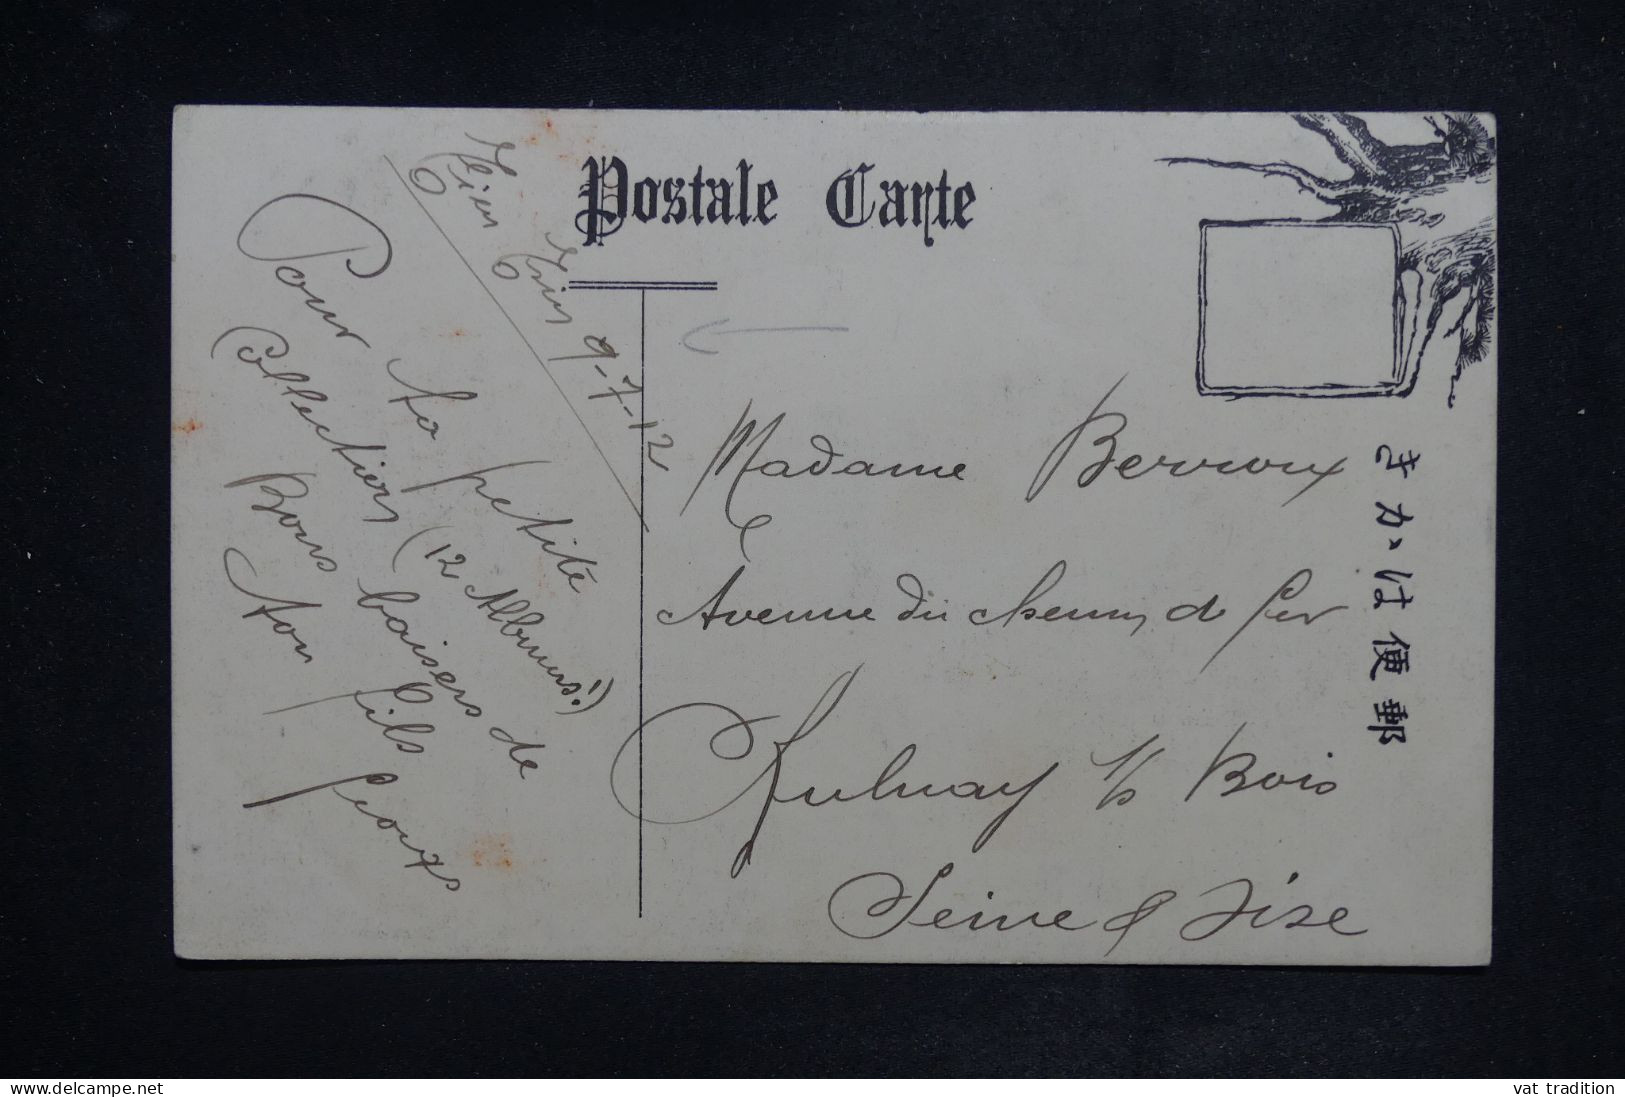 Postale Carte
Tien Tsin 9-7-12
Pour ta petite
Collection (12 Albums!)
Bons baisers de
ton fils
Madame Berroux
Avenue du chemin de fer
Aulnay s/s Bois
Seine & Oise
きかは便郵
www.delcampe.net
vat tradition